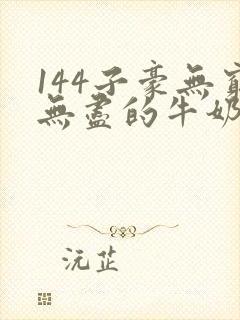 144子豪無窮
無盡的牛奶
沅芷